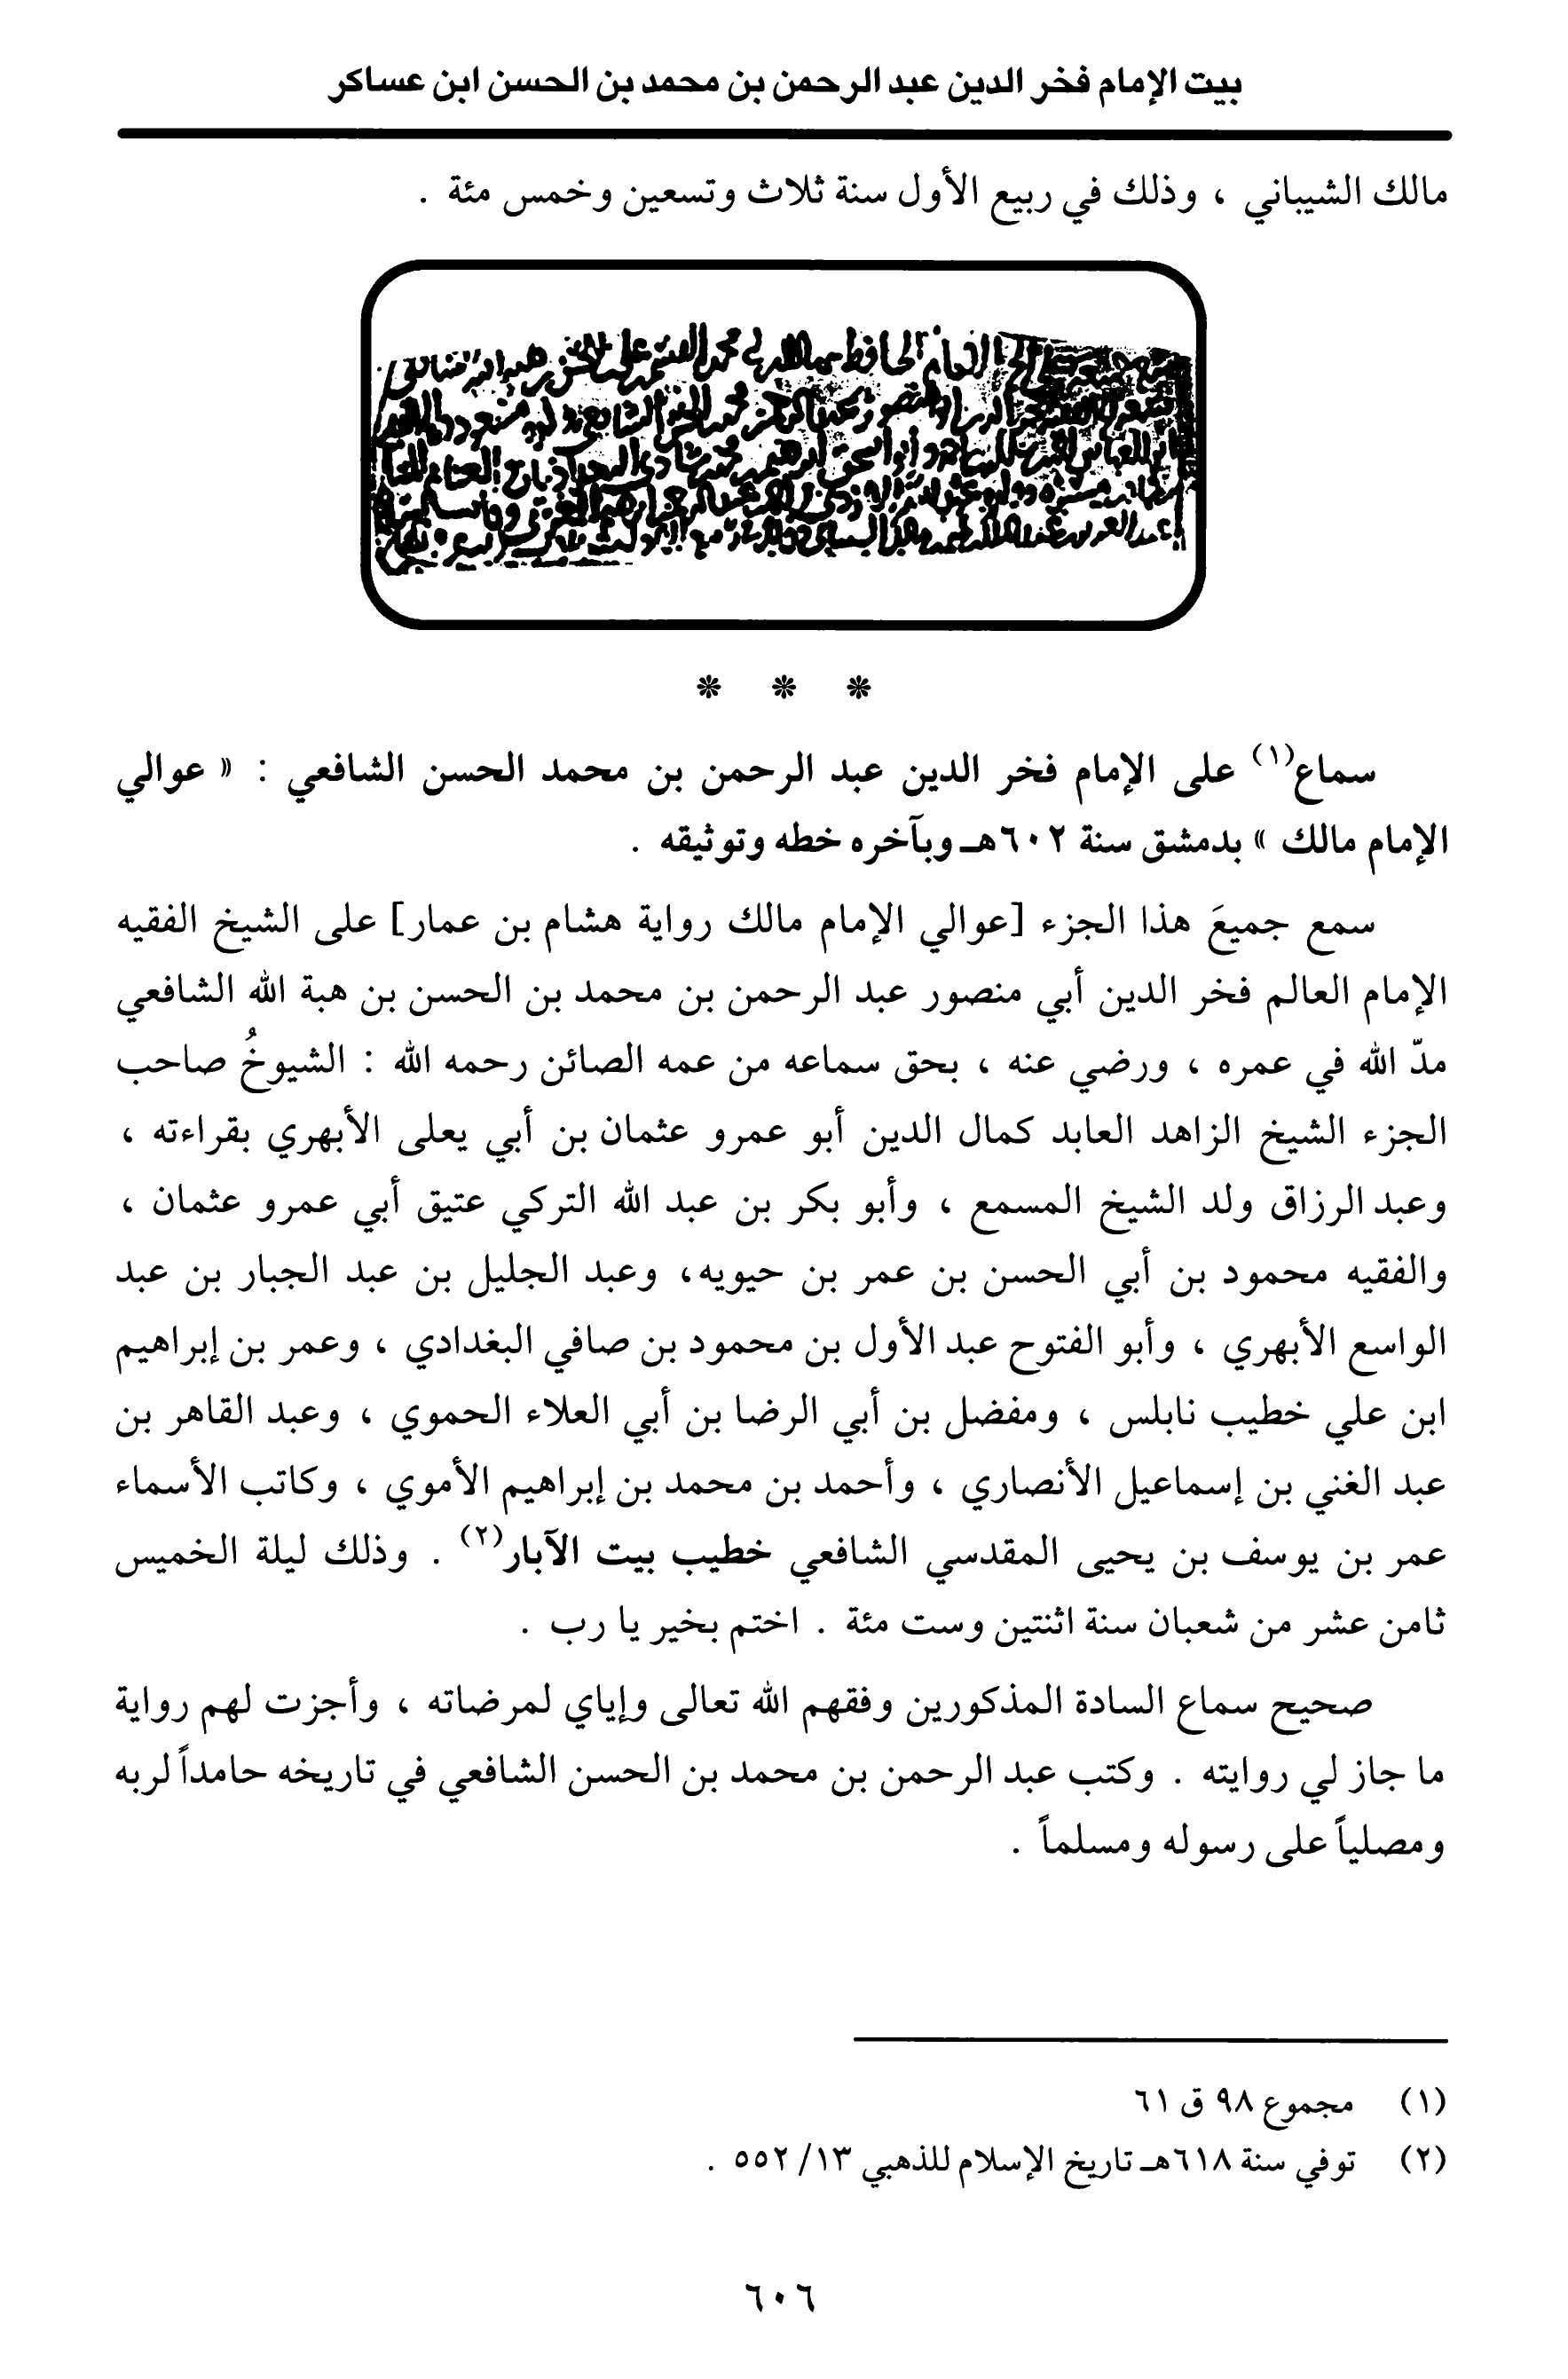 بيت الإمام فخر الدين عبد الرحمن بن محمد بن الحسن ابن عساكر
مالك الشيباني ، وذلك في ربيع الأول سنة ثلاث وتسعين وخمس مئة .
* * *
سماع(١) على الإمام فخر الدين عبد الرحمن بن محمد الحسن الشافعي : « عوالي
الإمام مالك » بدمشق سنة ٦٠٢هـ وبآخره خطه وتوثيقه .
سمع جميعَ هذا الجزء [عوالي الإمام مالك رواية هشام بن عمار] على الشيخ الفقيه
الإمام العالم فخر الدين أبي منصور عبد الرحمن بن محمد بن الحسن بن هبة الله الشافعي
مدّ الله في عمره ، ورضي عنه ، بحق سماعه من عمه الصائن رحمه الله : الشيوخُ صاحب
الجزء الشيخ الزاهد العابد كمال الدين أبو عمرو عثمان بن أبي يعلى الأبهري بقراءته ،
وعبد الرزاق ولد الشيخ المسمع ، وأبو بكر بن عبد الله التركي عتيق أبي عمرو عثمان ،
والفقيه محمود بن أبي الحسن بن عمر بن حيويه، وعبد الجليل بن عبد الجبار بن عبد
الواسع الأبهري ، وأبو الفتوح عبد الأول بن محمود بن صافي البغدادي ، وعمر بن إبراهيم
ابن علي خطيب نابلس ، ومفضل بن أبي الرضا بن أبي العلاء الحموي ، وعبد القاهر بن
عبد الغني بن إسماعيل الأنصاري ، وأحمد بن محمد بن إبراهيم الأموي ، وكاتب الأسماء
عمر بن يوسف بن يحيى المقدسي الشافعي خطيب بيت الآبار(٢) . وذلك ليلة الخميس
ثامن عشر من شعبان سنة اثنتين وست مئة . اختم بخير يا رب .
صحيح سماع السادة المذكورين وفقهم الله تعالى وإياي لمرضاته ، وأجزت لهم رواية
ما جاز لي روايته . وكتب عبد الرحمن بن محمد بن الحسن الشافعي في تاريخه حامداً لربه
ومصلياً على رسوله ومسلماً .
(١) مجموع ٩٨ ق ٦١
(٢) توفي سنة ٦١٨هـ تاريخ الإسلام للذهبي ١٣/ ٥٥٢ .
٦٠٦